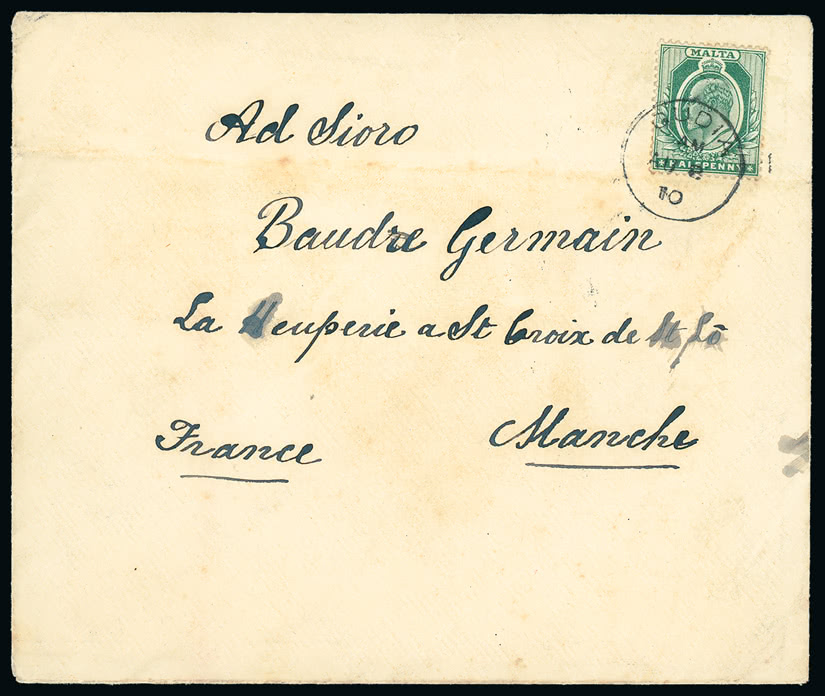 MALTA
HALFPENNY
AM
10
Ad Sioro
Baudre Germain
La Meuperie a St Croix de St Lô
France
Manche